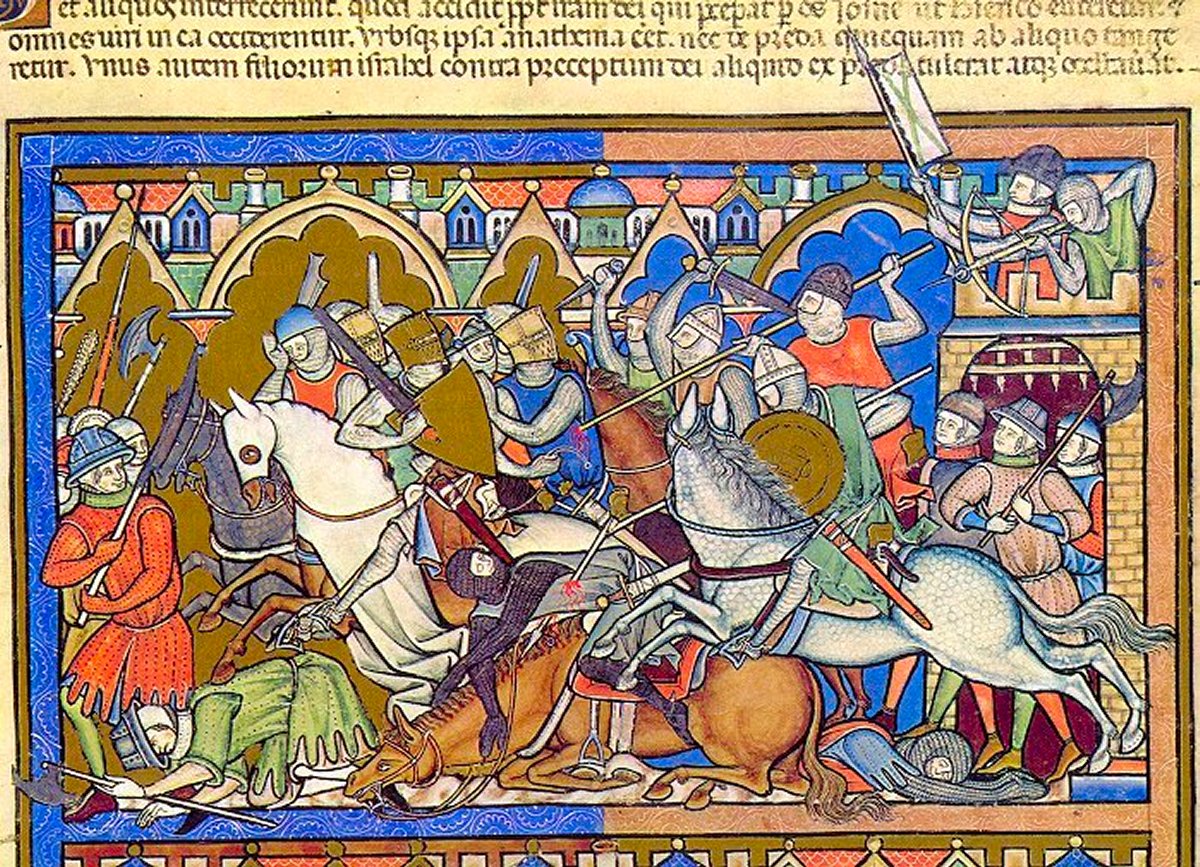 et aliquos interfecerunt. quod accidit
omnes uiri in ea occiderentur. Vrbsq; ipsa anathema eet. nec de preda quicquam ab aliquo tange
retur. Vnus autem filiorum israhel contra preceptum dei aliquid ex preda tulerat atq; occultauerat.